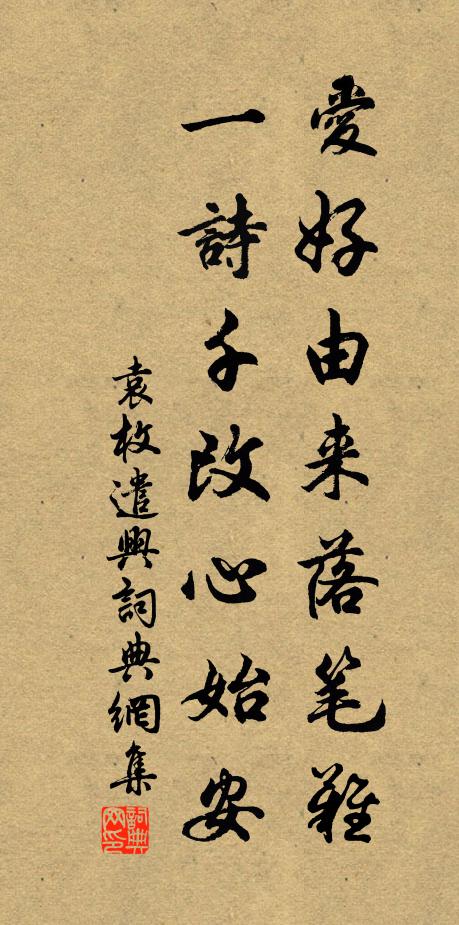 愛好由来落笔難
一詩千改心始安
袁枚遣興詞典網集
詞典網印